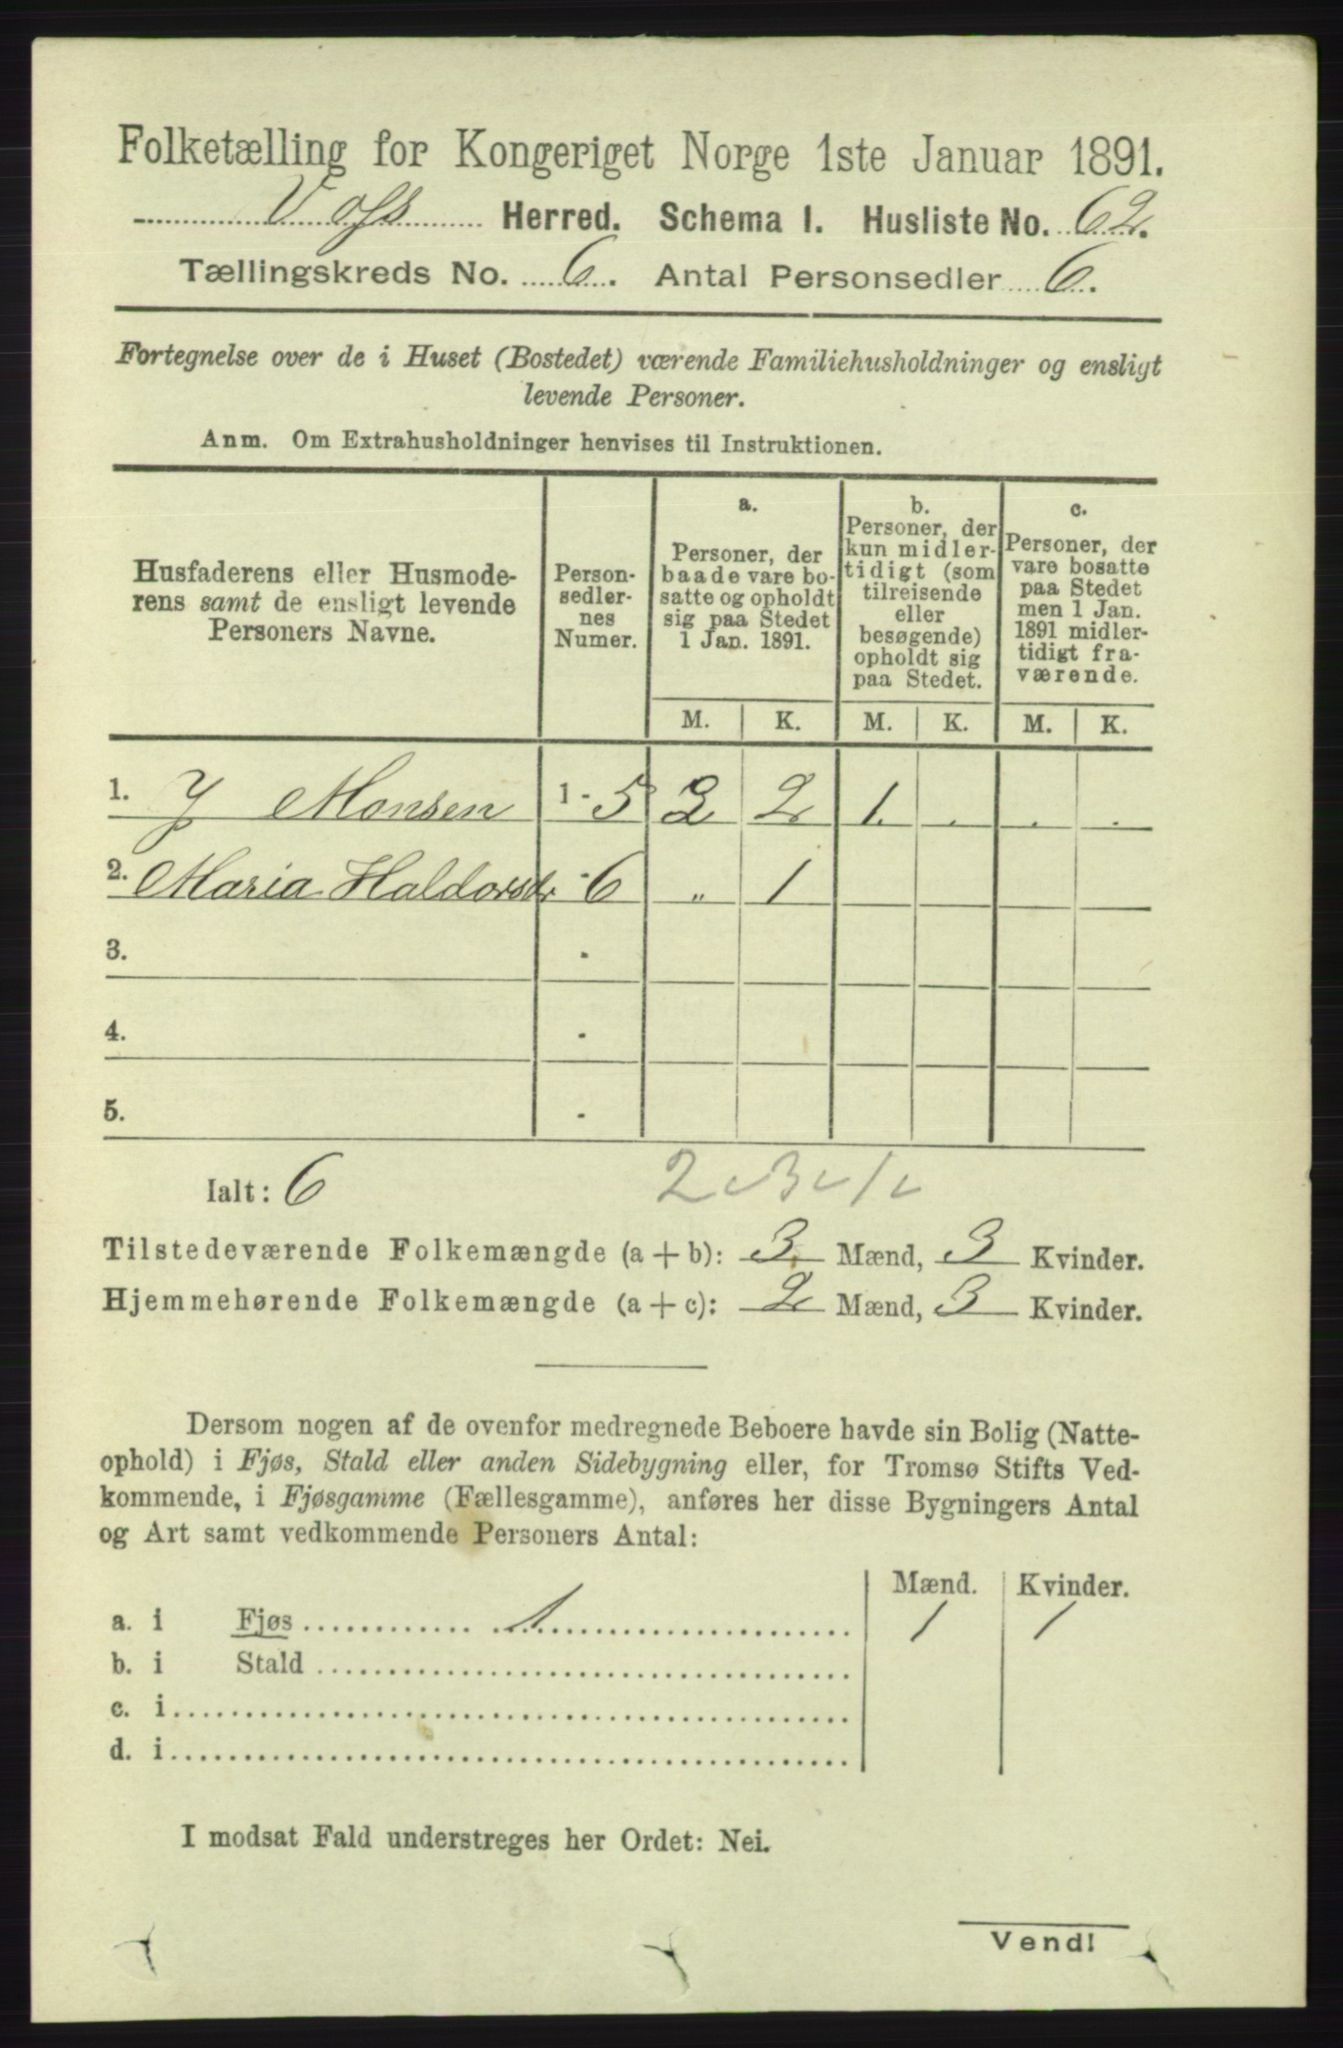 Folketælling for Kongeriget Norge 1ste Januar 1891.
Voss Herred. Schema 1. Husliste No. 62.
Tællingskreds No. 6. Antal Personsedler 6.
Fortegnelse over de i Huset (Bostedet) værende Familiehusholdninger og ensligt
levende Personer.
Anm. Om Extrahusholdninger henvises til Instruktionen.
Husfaderens eller Husmode-
rens samt de ensligt levende
Personers Navne.
Person-
sedler-
nes
Numer.
a.
Personer, der
baade vare bo-
satte og opholdt
sig paa Stedet
1 Jan. 1891.
b.
Personer, der
kun midler-
tidigt (som
tilreisende
eller
besøgende)
opholdt sig
paa Stedet.
c.
Personer, der
vare bosatte
paa Stedet
men 1 Jan.
1891 midler-
tidigt fra-
værende.
M. K. M. K. M. K.
1. J Monsen 1 - 5 2 2 1. . . .
2. Maria Haldorsdr - 6 „ 1
3. -
4. -
5. -
Ialt: 6
Tilstedeværende Folkemængde (a + b): 3 Mænd, 3 Kvinder.
Hjemmehørende Folkemængde (a + c): 2 Mænd, 3 Kvinder.
Dersom nogen af de ovenfor medregnede Beboere havde sin Bolig (Natte-
ophold) i Fjøs, Stald eller anden Sidebygning eller, for Tromsø Stifts Ved-
kommende, i Fjøsgamme (Fællesgamme), anføres her disse Bygningers Antal
og Art samt vedkommende Personers Antal:
Mænd. Kvinder.
a. i Fjøs 1 1 1
b. i Stald
c. i
d. i
I modsat Fald understreges her Ordet: Nei.
Vend!